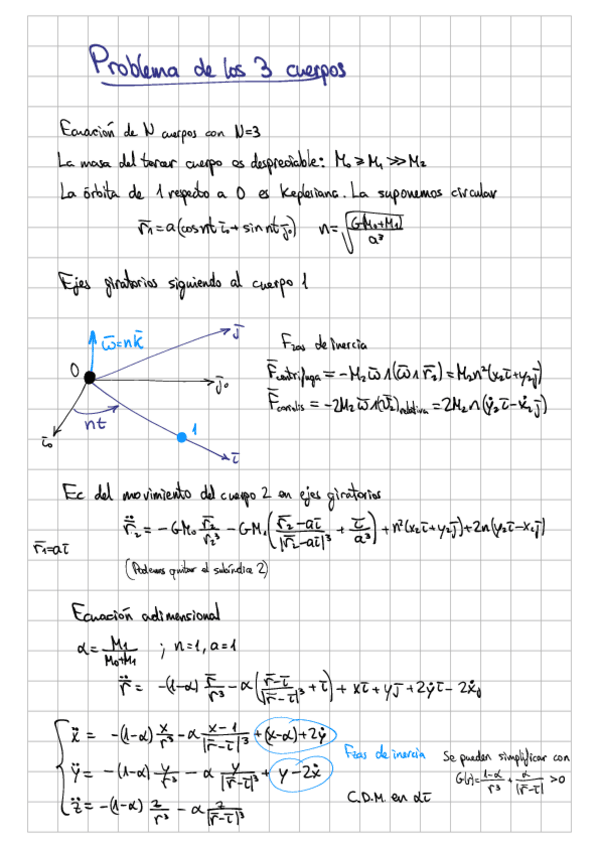 Problema de los 3 cuerpos
Ecuación de N cuerpos con N=3
La masa del tercer cuerpo es despreciable: M₀ ⩾ M₁ ≫ M₂
La órbita de 1 respecto a 0 es Kepleriana. La suponemos circular
r̄₁ = a(cos nt ī₀ + sin nt j̄₀)   n = √(G(M₀+M₁)/a³)
Ejes giratorios siguiendo al cuerpo 1
ω̄=nk̄
j̄
0
j̄₀
1
nt
ī₀
ī
Fzas de inercia
F̄centrífuga = -M₂ ω̄∧(ω̄∧r̄₂) = M₂n²(x₂ī+y₂j̄)
F̄coriolis = -2M₂ ω̄∧(v̄₂)relativa = 2M₂n(ẏ₂ī-ẋ₂j̄)
Ec del movimiento del cuerpo 2 en ejes giratorios
r̄̈₂ = -GM₀ r̄₂/r₂³ - GM₁ ((r̄₂-aī)/|r̄₂-aī|³ + ī/a³) + n²(x₂ī+y₂j̄) + 2n(ẏ₂ī-ẋ₂j̄)
r̄₁=aī
(Podemos quitar el subíndice 2)
Ecuación adimensional
α = M₁/(M₀+M₁) ; n=1, a=1
r̄̈ = -(1-α) r̄/r³ - α((r̄-ī)/|r̄-ī|³ + ī) + xī + yj̄ + 2ẏī - 2ẋj̄
ẍ = -(1-α) x/r³ - α (x-1)/|r̄-ī|³ + (x-α)+2ẏ
ÿ = -(1-α) y/r³ - α y/|r̄-ī|³ + y-2ẋ
z̈ = -(1-α) z/r³ - α z/|r̄-ī|³
Fzas de inercia
C.D.M. en αī
Se pueden simplificar con
G(r)= (1-α)/r³ + α/|r̄-ī| >0